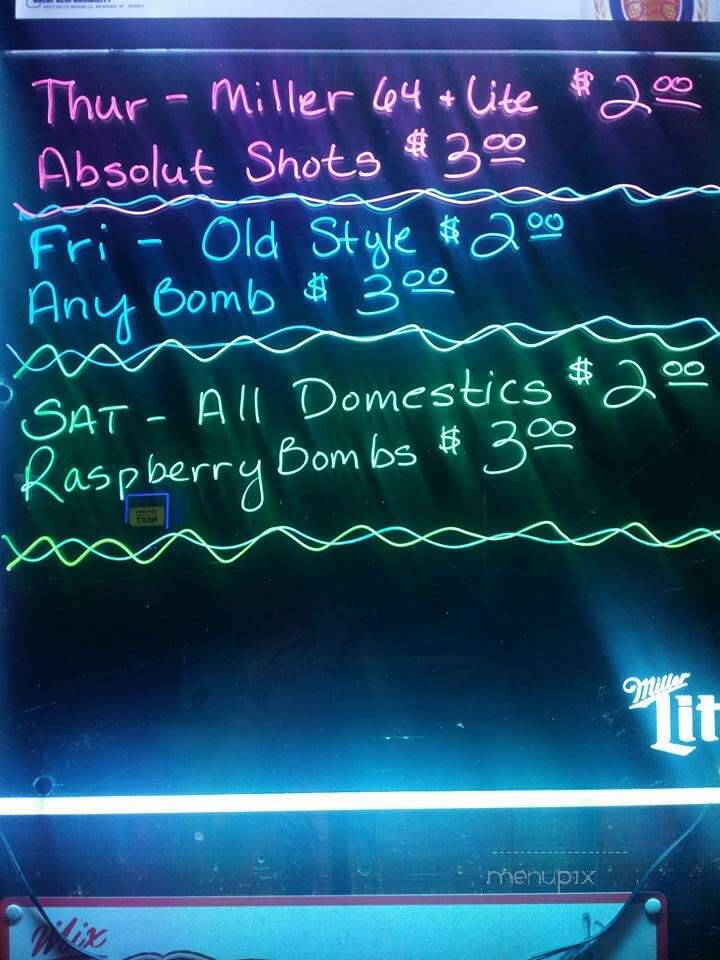 Thur - Miller 64 + Lite $2.00
Absolut Shots $3.00
Fri - Old Style $2.00
Any Bomb $3.00
SAT - All Domestics $2.00
Raspberry Bombs $3.00
NEXT
Miller
Lit
menupix
Mix